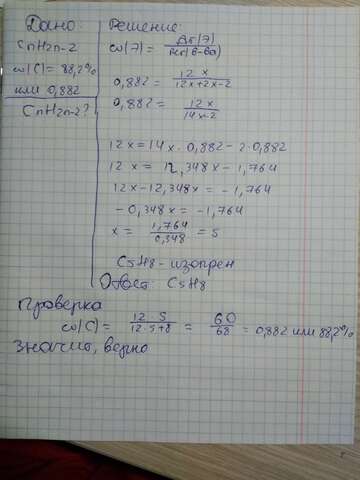 Дано:
CnH2n-2
ω(C)=88,2%
или 0,882
CnH2n-2?
Решение
ω(Э)= Ar(Э) / Mr(в-ва)
0,882= 12x / 12x+2x-2
0,882= 12x / 14x-2
12x=14x·0,882-2·0,882
12x= 12,348x-1,764
12x-12,348x= -1,764
-0,348x= -1,764
x= 1,764 / 0,348 = 5
C5H8-изопрен
Ответ: C5H8
Проверка
ω(C)= 12·5 / 12·5+8 = 60 / 68 = 0,882 или 88,2%
значит, верно